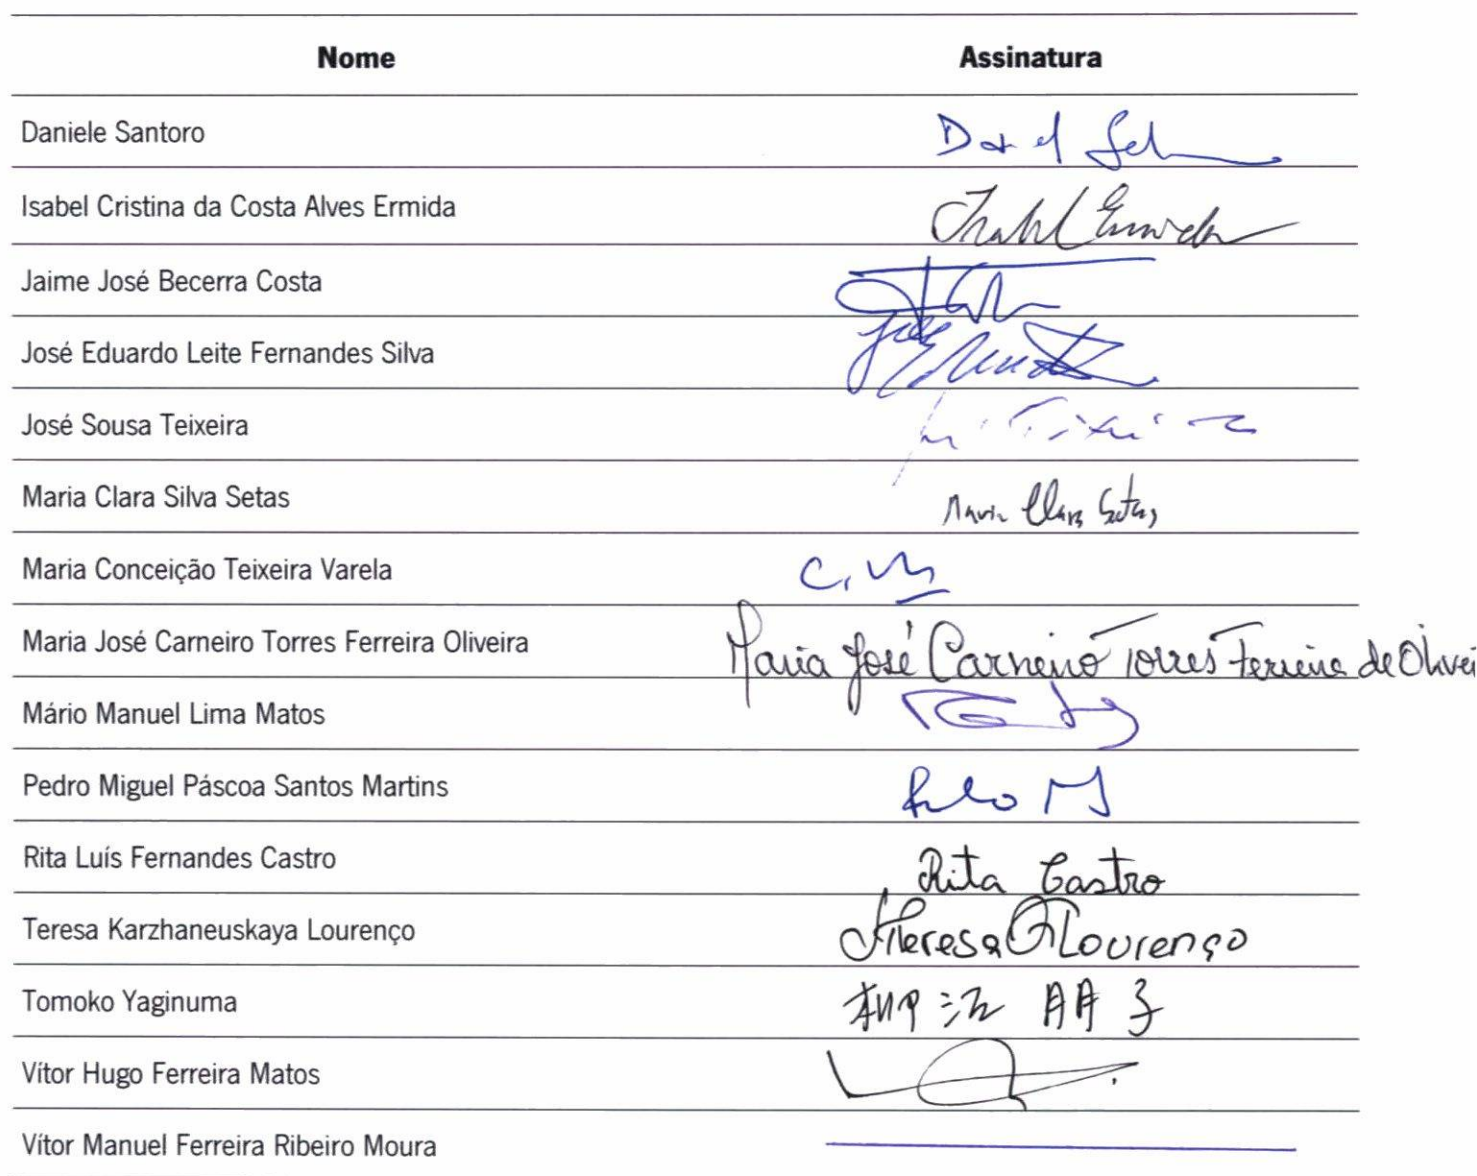 Nome Assinatura
Daniele Santoro
Isabel Cristina da Costa Alves Ermida Isabel Ermida
Jaime José Becerra Costa
José Eduardo Leite Fernandes Silva
José Sousa Teixeira José Teixeira
Maria Clara Silva Setas Maria Clara Setas
Maria Conceição Teixeira Varela
Maria José Carneiro Torres Ferreira Oliveira Maria José Carneiro Torres Ferreira de Olivei
Mário Manuel Lima Matos
Pedro Miguel Páscoa Santos Martins
Rita Luís Fernandes Castro Rita Castro
Teresa Karzhaneuskaya Lourenço Lourenço
Tomoko Yaginuma 柳沼 朋子
Vítor Hugo Ferreira Matos
Vítor Manuel Ferreira Ribeiro Moura